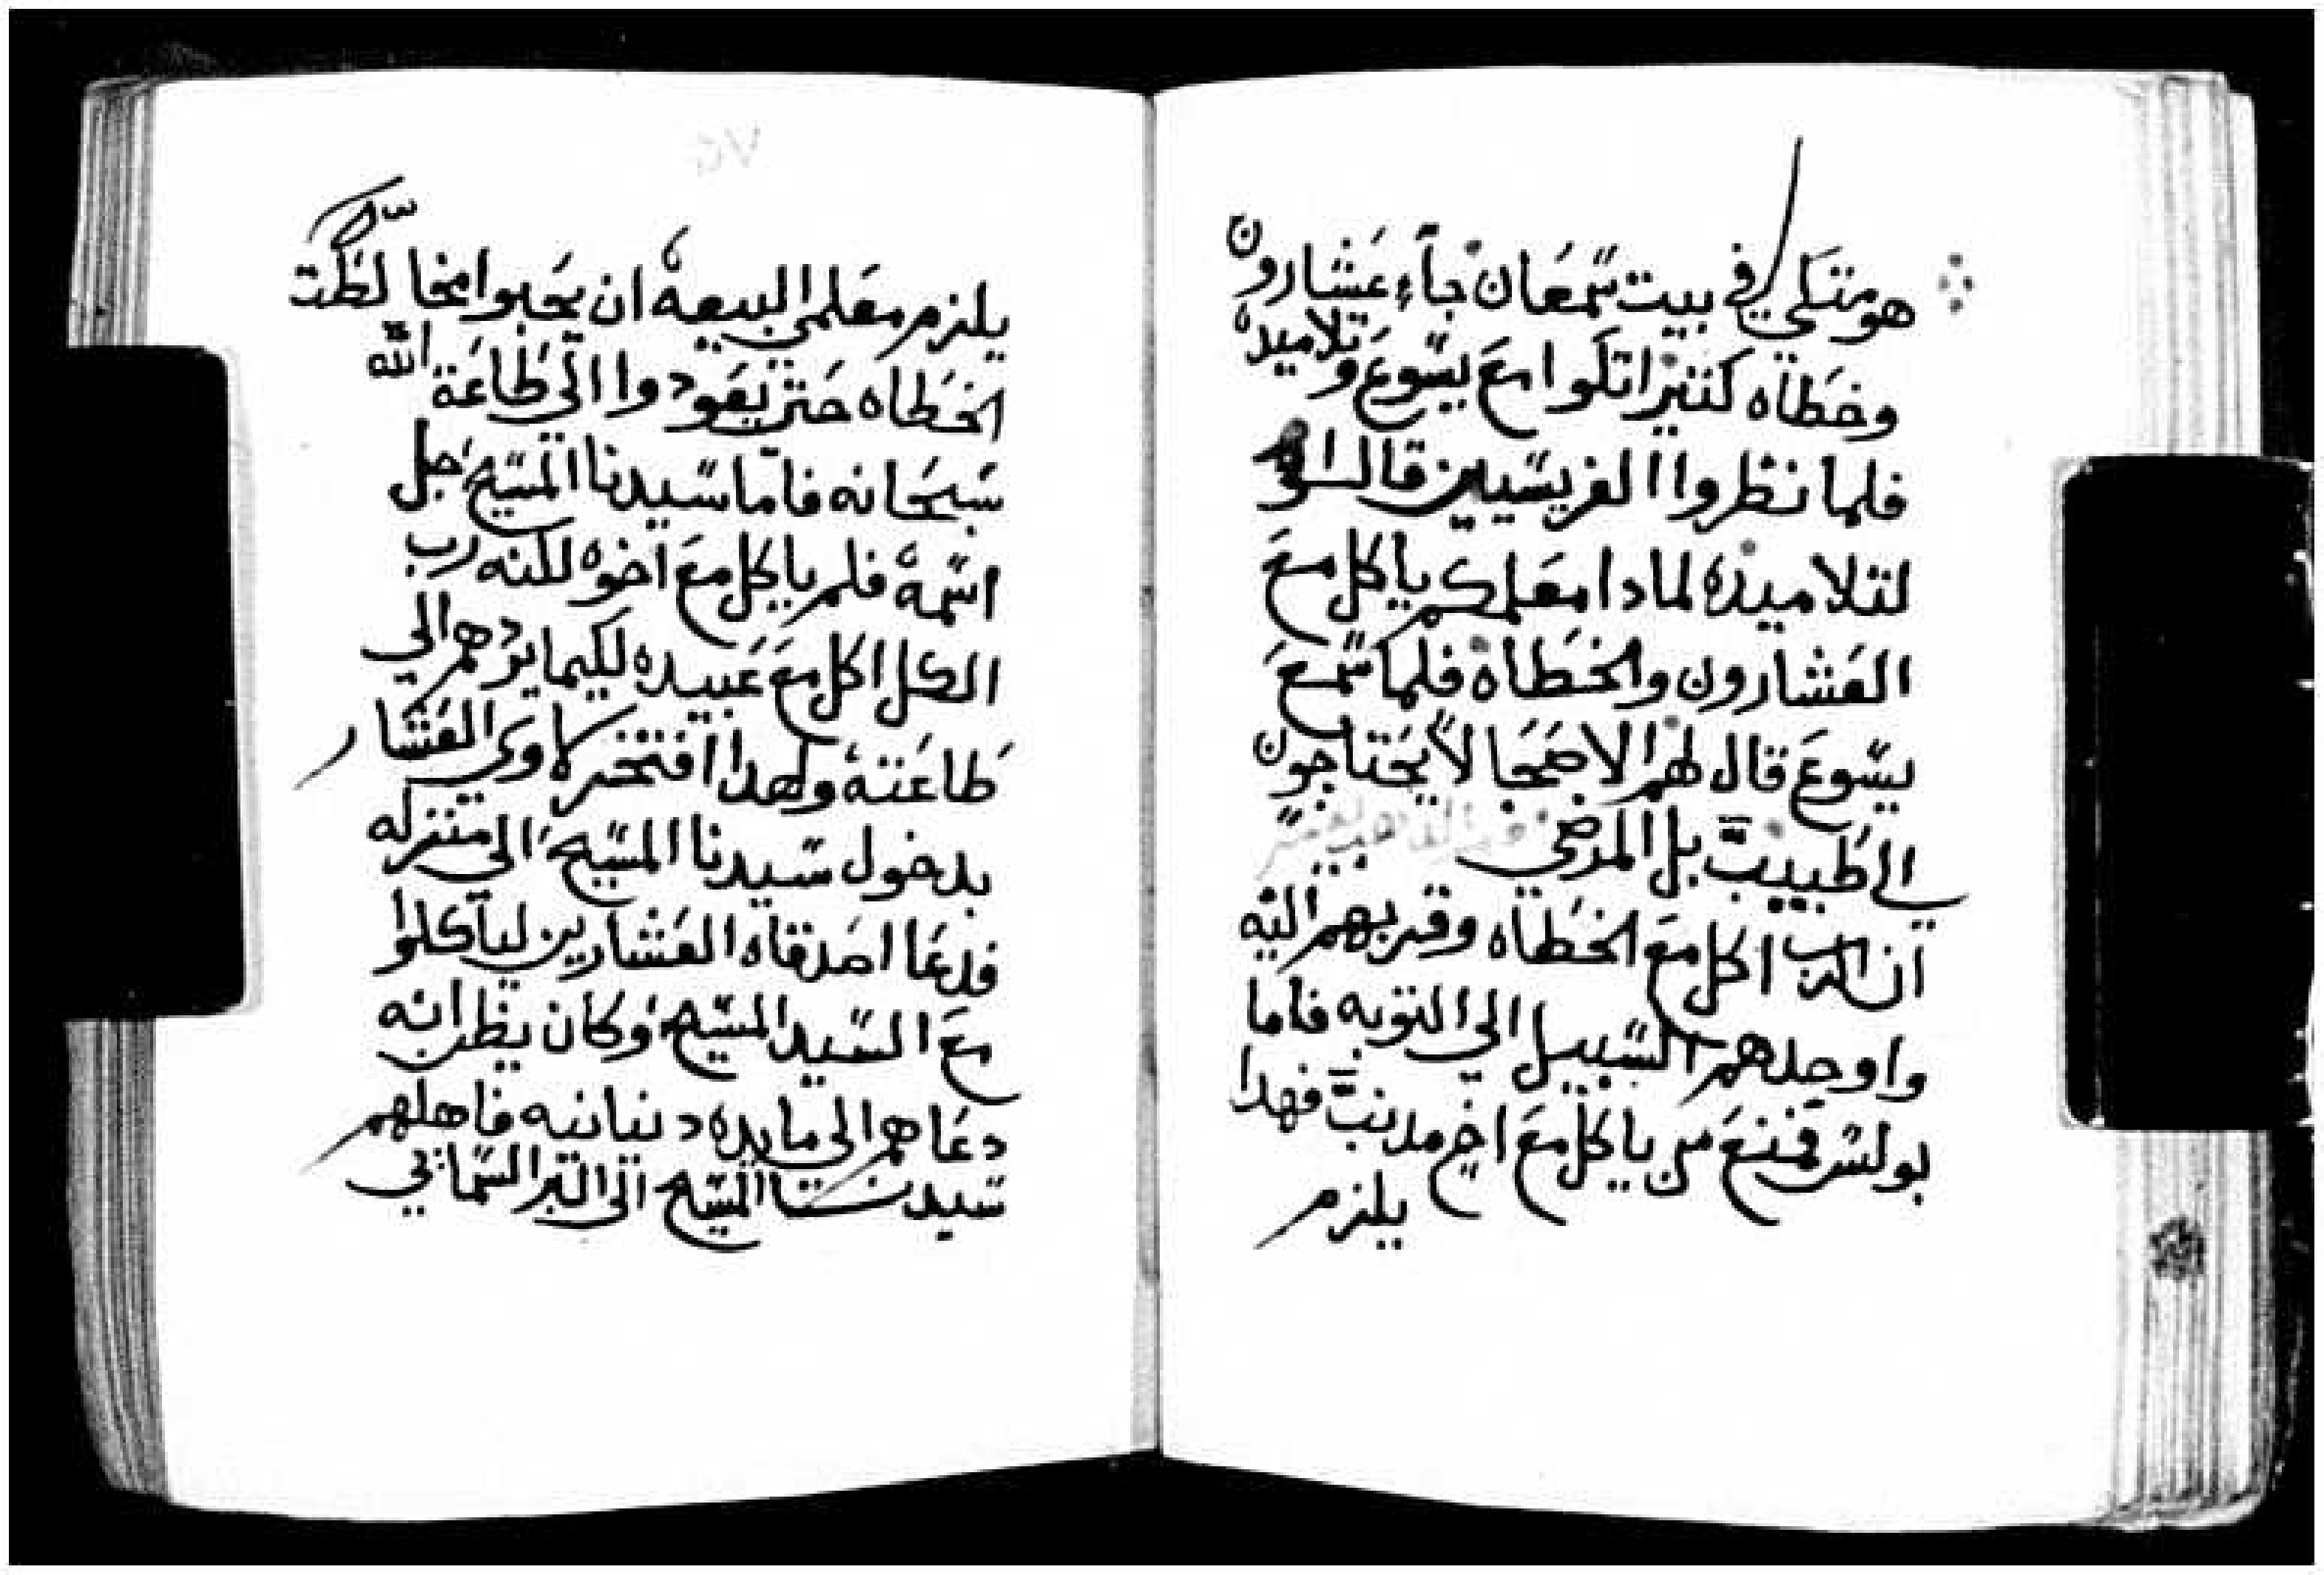 هو متكي في بيت سمعان جآء عشارون
وخطاه كثير اتكوا مع يسوع وتلاميده
فلما نظروا الفريسيين قالوا
لتلاميده لمادا معلمكم ياكل مع
العشارون والخطاه فلما سمع
يسوع قال لهم الاصحا لا يحتاجون
الي طبيب بل المرضي
ان الرب اكل مع الخطاه وقربهم اليه
واوجدهم السبيل الي التوبه فاما
بولس فمنع من ياكل مع اخ مدنب فهدا
يلزم
يلزم معلمي البيعه ان يجبوا مخالطت
الخطاه حتي يعودوا الي طاعة الله
سبحانه فاما سيدنا المسيح جل
اسمه فلم ياكل مع اخوه لكنه رب
الكل اكل مع عبيده لكيما يردهم الي
طاعته ولهدا افتخر لاوي العشار
بدخول سيدنا المسيح الي منزله
فدعا اصدقاه العشارين لياكلوا
مع السيد المسيح وكان يظن انه
دعاهم الي مايده دنيانيه فاهلهم
سيدنا المسيح الي البر السماني